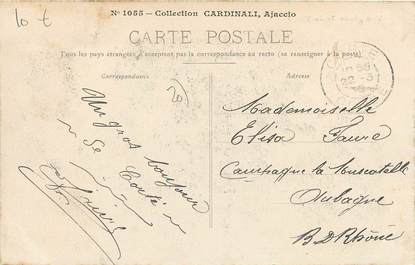 10 €
Nº 1055 — Collection CARDINALI, Ajaccio
CARTE POSTALE
Tous les pays étrangers n'acceptent pas la correspondance au recto (se renseigner à la poste)
Correspondance
Adresse
Un gros bonjour
de
Corté
Faure
Mademoiselle
Elisa Faure
Campagne la Muscatelle
Aubagne
B D Rhône